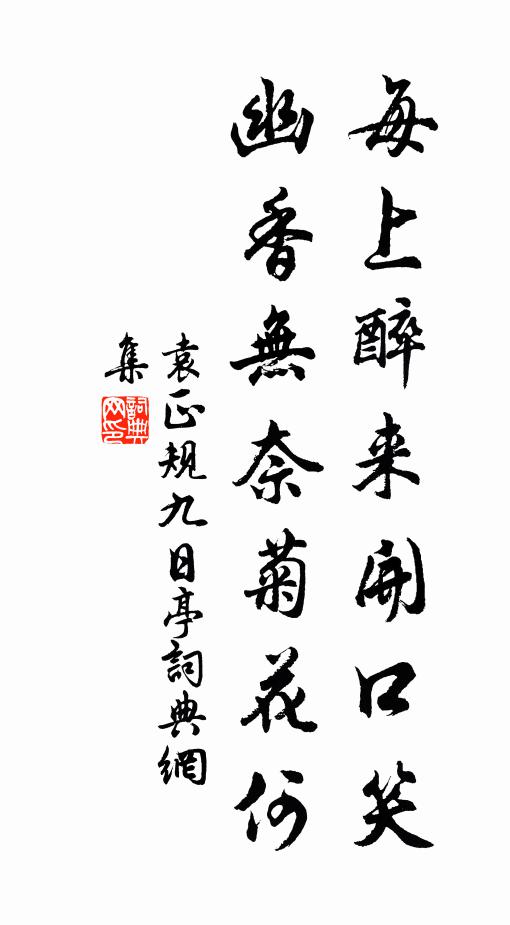 每上醉来開口笑
幽香無奈菊花何
袁正规九日亭詞典網
集
詞典
网印